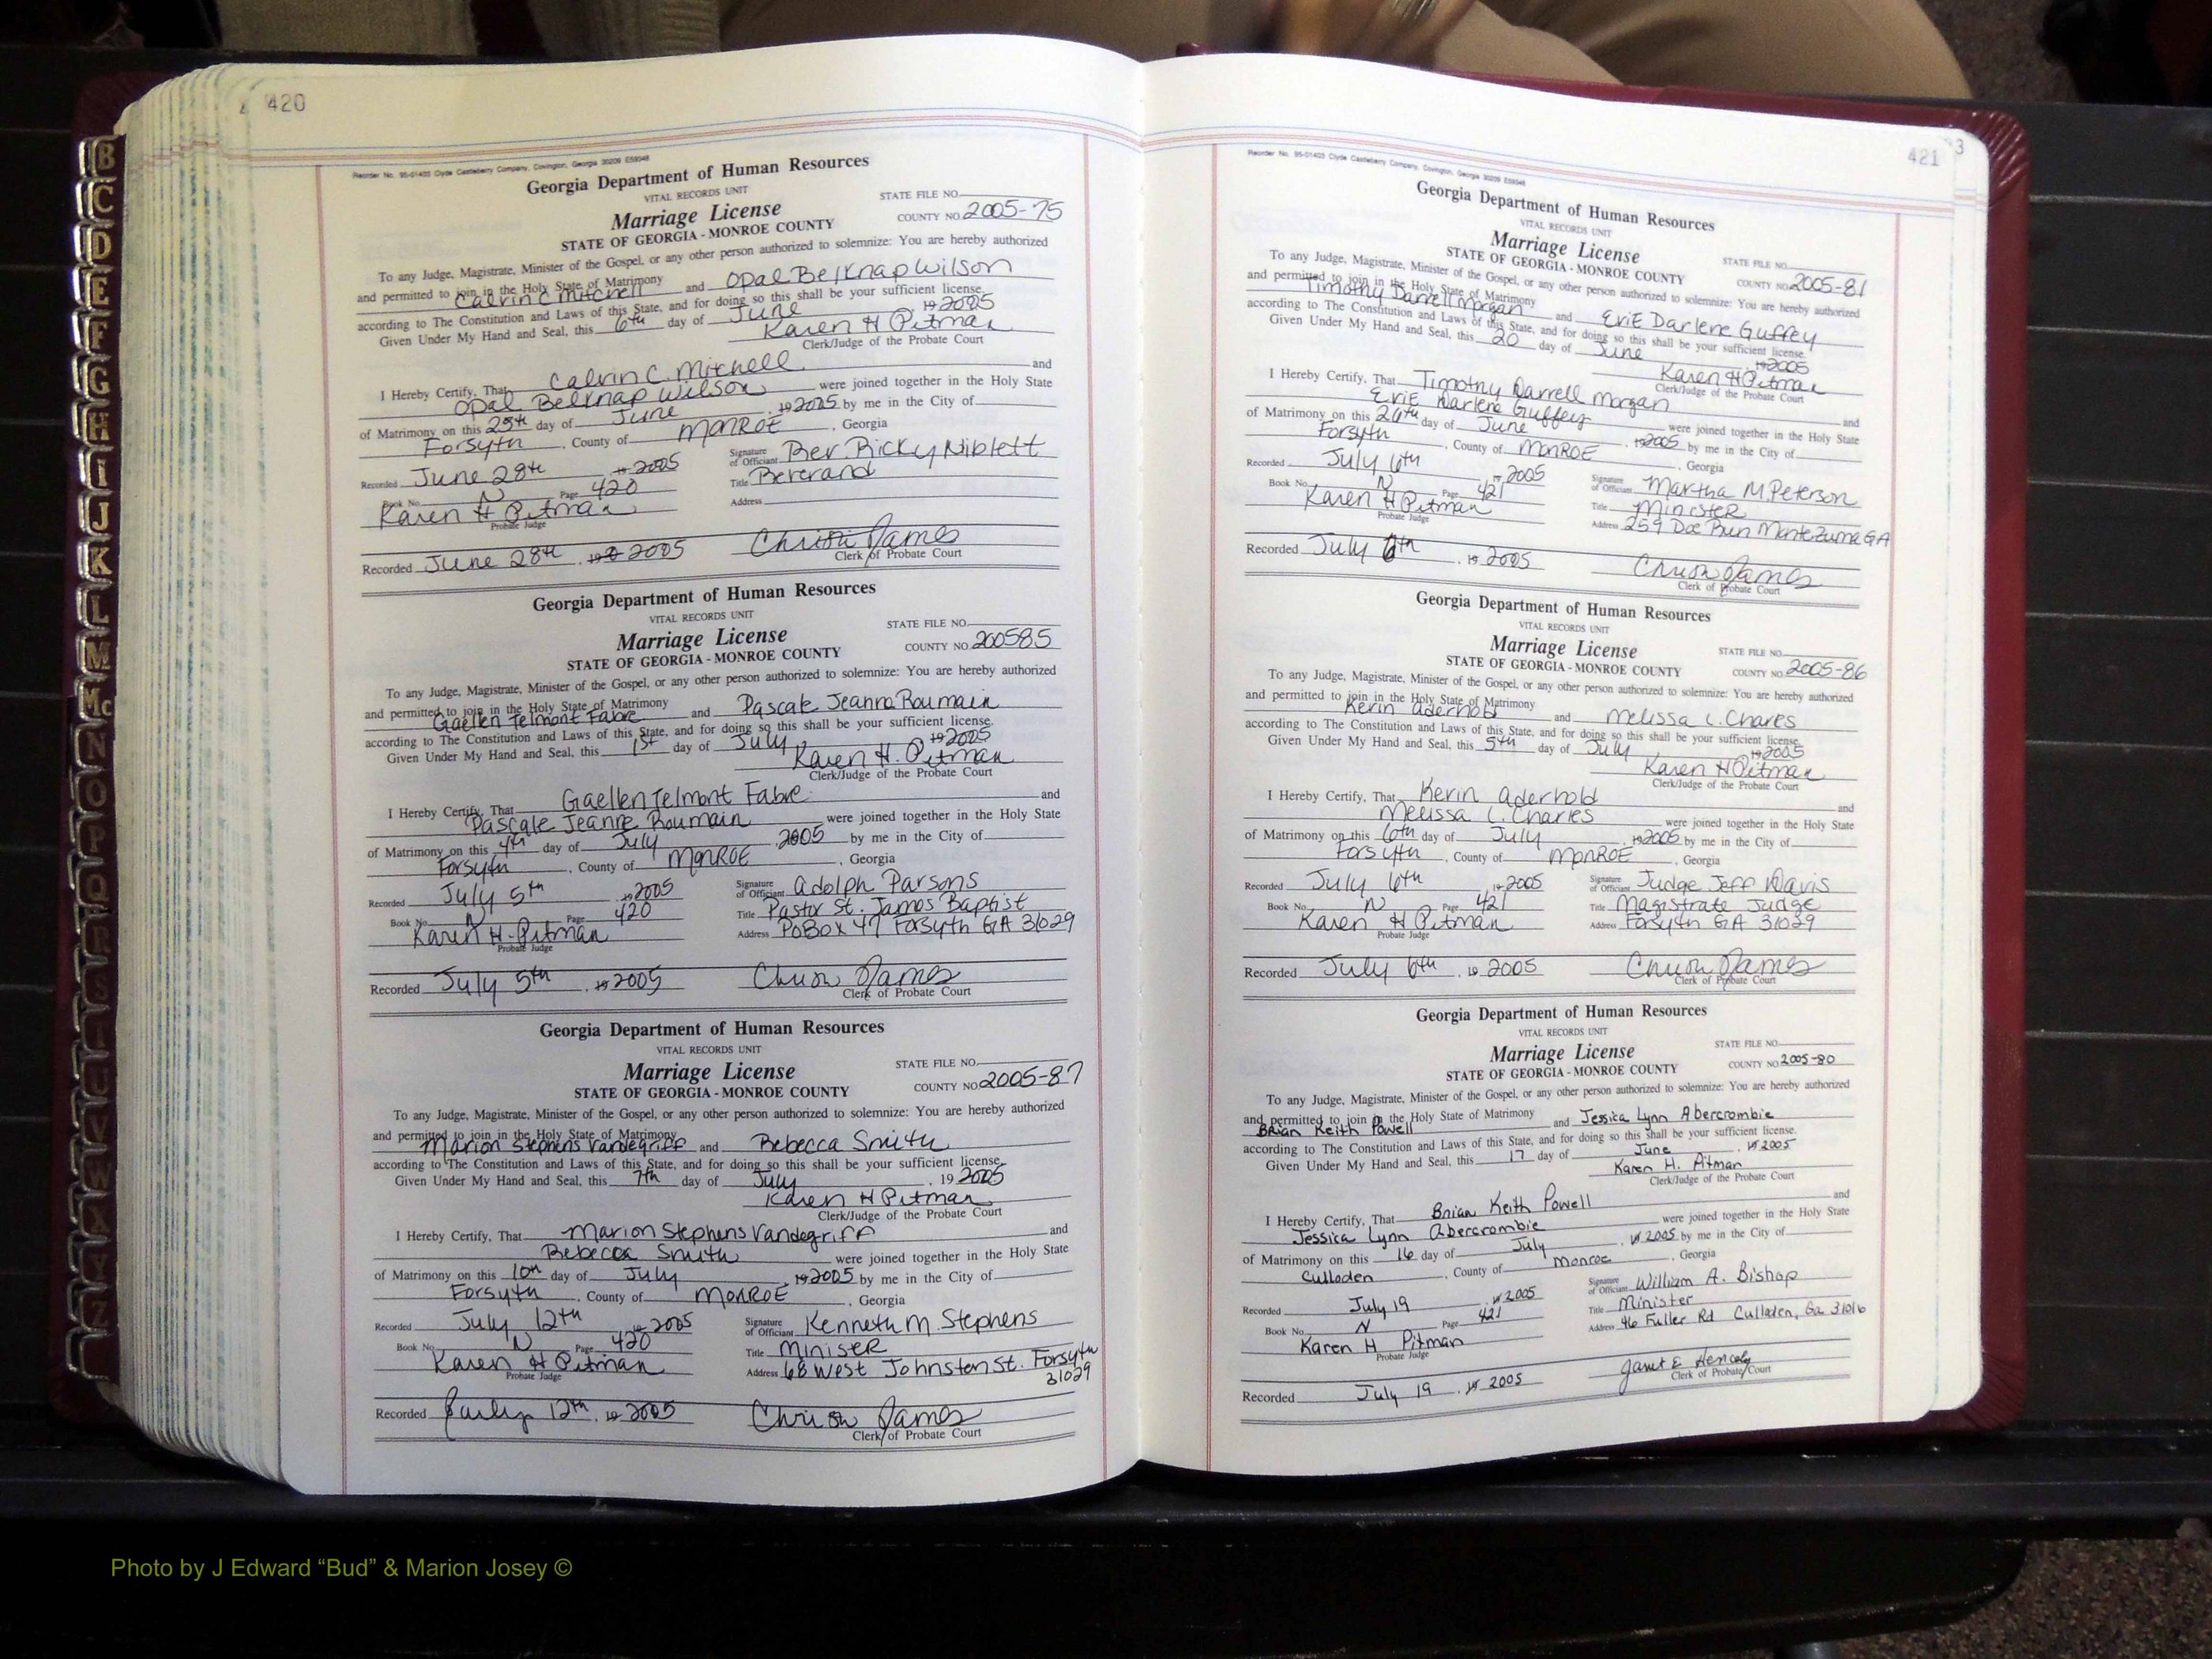 B
C
D
E
F
G
H
I
J
K
L
M
Mc
N
O
P
Q
R
S
T
U
V
W
X
Y
Z
420
Reorder No. 95-01403 Clyde Castleberry Company, Covington, Georgia 30209 E59348
Georgia Department of Human Resources
VITAL RECORDS UNIT
STATE FILE NO.
Marriage License
COUNTY NO. 2005-75
STATE OF GEORGIA - MONROE COUNTY
To any Judge, Magistrate, Minister of the Gospel, or any other person authorized to solemnize: You are hereby authorized
and permitted to join in the Holy State of Matrimony
Calvin C Mitchell and Opal Belknap Wilson
according to The Constitution and Laws of this State, and for doing so this shall be your sufficient license.
Given Under My Hand and Seal, this 6th day of June, 19 2005
Karen H Pitman
Clerk/Judge of the Probate Court
I Hereby Certify, That Calvin C. Mitchell and
Opal Belknap Wilson were joined together in the Holy State
of Matrimony on this 25th day of June, 19 2005 by me in the City of
Forsyth, County of MONROE, Georgia
Recorded June 28th 19 2005 Signature of Officiant Rev. Ricky Niblett
Book No. N Page 420 Title Reverand
Karen H Pitman Address
Probate Judge
Recorded June 28th, 19 2005 Christi James
Clerk of Probate Court
Georgia Department of Human Resources
VITAL RECORDS UNIT
STATE FILE NO.
Marriage License
COUNTY NO. 200585
STATE OF GEORGIA - MONROE COUNTY
To any Judge, Magistrate, Minister of the Gospel, or any other person authorized to solemnize: You are hereby authorized
and permitted to join in the Holy State of Matrimony
Gaellen Telmont Fabre and Pascale Jeanne Roumain
according to The Constitution and Laws of this State, and for doing so this shall be your sufficient license.
Given Under My Hand and Seal, this 1st day of July, 19 2005
Karen H. Pitman
Clerk/Judge of the Probate Court
I Hereby Certify, That Gaellen Telmont Fabre and
Pascale Jeanne Roumain were joined together in the Holy State
of Matrimony on this 4th day of July, 2005 by me in the City of
Forsyth, County of MONROE, Georgia
Recorded July 5th 19 2005 Signature of Officiant Adolph Parsons
Book No. N Page 420 Title Pastor St. James Baptist
Karen H. Pitman Address PO Box 47 Forsyth GA 31029
Probate Judge
Recorded July 5th, 19 2005 Christi James
Clerk of Probate Court
Georgia Department of Human Resources
VITAL RECORDS UNIT
STATE FILE NO.
Marriage License
COUNTY NO. 2005-87
STATE OF GEORGIA - MONROE COUNTY
To any Judge, Magistrate, Minister of the Gospel, or any other person authorized to solemnize: You are hereby authorized
and permitted to join in the Holy State of Matrimony
Marion Stephens Vandegriff and Rebecca Smith
according to The Constitution and Laws of this State, and for doing so this shall be your sufficient license.
Given Under My Hand and Seal, this 7th day of July, 19 2005
Karen H Pitman
Clerk/Judge of the Probate Court
I Hereby Certify, That Marion Stephens Vandegriff and
Rebecca Smith were joined together in the Holy State
of Matrimony on this 10th day of July, 19 2005 by me in the City of
Forsyth, County of MONROE, Georgia
Recorded July 12th 19 2005 Signature of Officiant Kenneth M. Stephens
Book No. N Page 420 Title MiniseR
Karen H Pitman Address 68 West Johnston St. Forsyth
Probate Judge 31029
Recorded July 12th, 19 2005 Christi James
Clerk of Probate Court
421
3
Reorder No. 95-01403 Clyde Castleberry Company, Covington, Georgia 30209 E59348
Georgia Department of Human Resources
VITAL RECORDS UNIT
Marriage License
STATE FILE NO.
STATE OF GEORGIA - MONROE COUNTY
COUNTY NO. 2005-81
To any Judge, Magistrate, Minister of the Gospel, or any other person authorized to solemnize: You are hereby authorized
and permitted to join in the Holy State of Matrimony
Timothy Darrell Morgan and EviE Darlene Guffey
according to The Constitution and Laws of this State, and for doing so this shall be your sufficient license.
Given Under My Hand and Seal, this 20 day of June 19 2005
Karen H Pitman
Clerk/Judge of the Probate Court
I Hereby Certify, That Timothy Darrell Morgan and
EviE Darlene Guffey were joined together in the Holy State
of Matrimony on this 26th day of June, 19 2005 by me in the City of
Forsyth, County of MONROE, Georgia
Recorded July 6th 19 2005 Signature of Officiant Martha M. Peterson
Book No. N Page 421 Title MinisteR
Karen H Pitman Address 259 Doe Run Montezuma GA
Probate Judge
Recorded July 6th, 19 2005 Christi James
Clerk of Probate Court
Georgia Department of Human Resources
VITAL RECORDS UNIT
Marriage License
STATE FILE NO.
STATE OF GEORGIA - MONROE COUNTY
COUNTY NO. 2005-86
To any Judge, Magistrate, Minister of the Gospel, or any other person authorized to solemnize: You are hereby authorized
and permitted to join in the Holy State of Matrimony
Kevin Aderhold and Melissa L. Charles
according to The Constitution and Laws of this State, and for doing so this shall be your sufficient license.
Given Under My Hand and Seal, this 5th day of July 19 2005
Karen H Pitman
Clerk/Judge of the Probate Court
I Hereby Certify, That Kevin Aderhold and
Melissa L. Charles were joined together in the Holy State
of Matrimony on this 6th day of July, 19 2005 by me in the City of
Forsyth, County of MONROE, Georgia
Recorded July 6th 19 2005 Signature of Officiant Judge Jeff Davis
Book No. N Page 421 Title Magistrate Judge
Karen H Pitman Address Forsyth GA 31029
Probate Judge
Recorded July 6th, 19 2005 Christi James
Clerk of Probate Court
Georgia Department of Human Resources
VITAL RECORDS UNIT
STATE FILE NO.
Marriage License
COUNTY NO. 2005-80
STATE OF GEORGIA - MONROE COUNTY
To any Judge, Magistrate, Minister of the Gospel, or any other person authorized to solemnize: You are hereby authorized
and permitted to join in the Holy State of Matrimony
Brian Keith Powell and Jessica Lynn Abercrombie
according to The Constitution and Laws of this State, and for doing so this shall be your sufficient license.
Given Under My Hand and Seal, this 17 day of June, 19 2005
Karen H. Pitman
Clerk/Judge of the Probate Court
I Hereby Certify, That Brian Keith Powell and
Jessica Lynn Abercrombie were joined together in the Holy State
of Matrimony on this 16 day of July, 19 2005 by me in the City of
Culloden, County of Monroe, Georgia
Recorded July 19, 19 2005 Signature of Officiant William A. Bishop
Book No. N Page 421 Title Minister
Karen H Pitman Address 46 Fuller Rd Culloden, Ga 31016
Probate Judge
Recorded July 19, 19 2005 Janet E Hensley
Clerk of Probate Court
Photo by J Edward “Bud” & Marion Josey ©